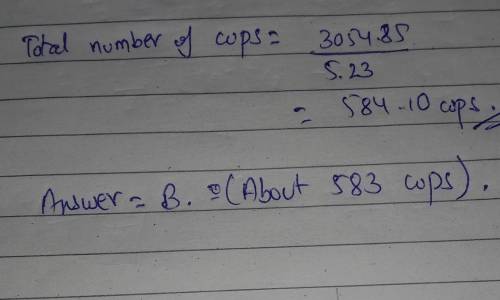 Total number of cops = 3054.85
5.23
= 584.10 cops.
Answer = B. = (About 583 cops).